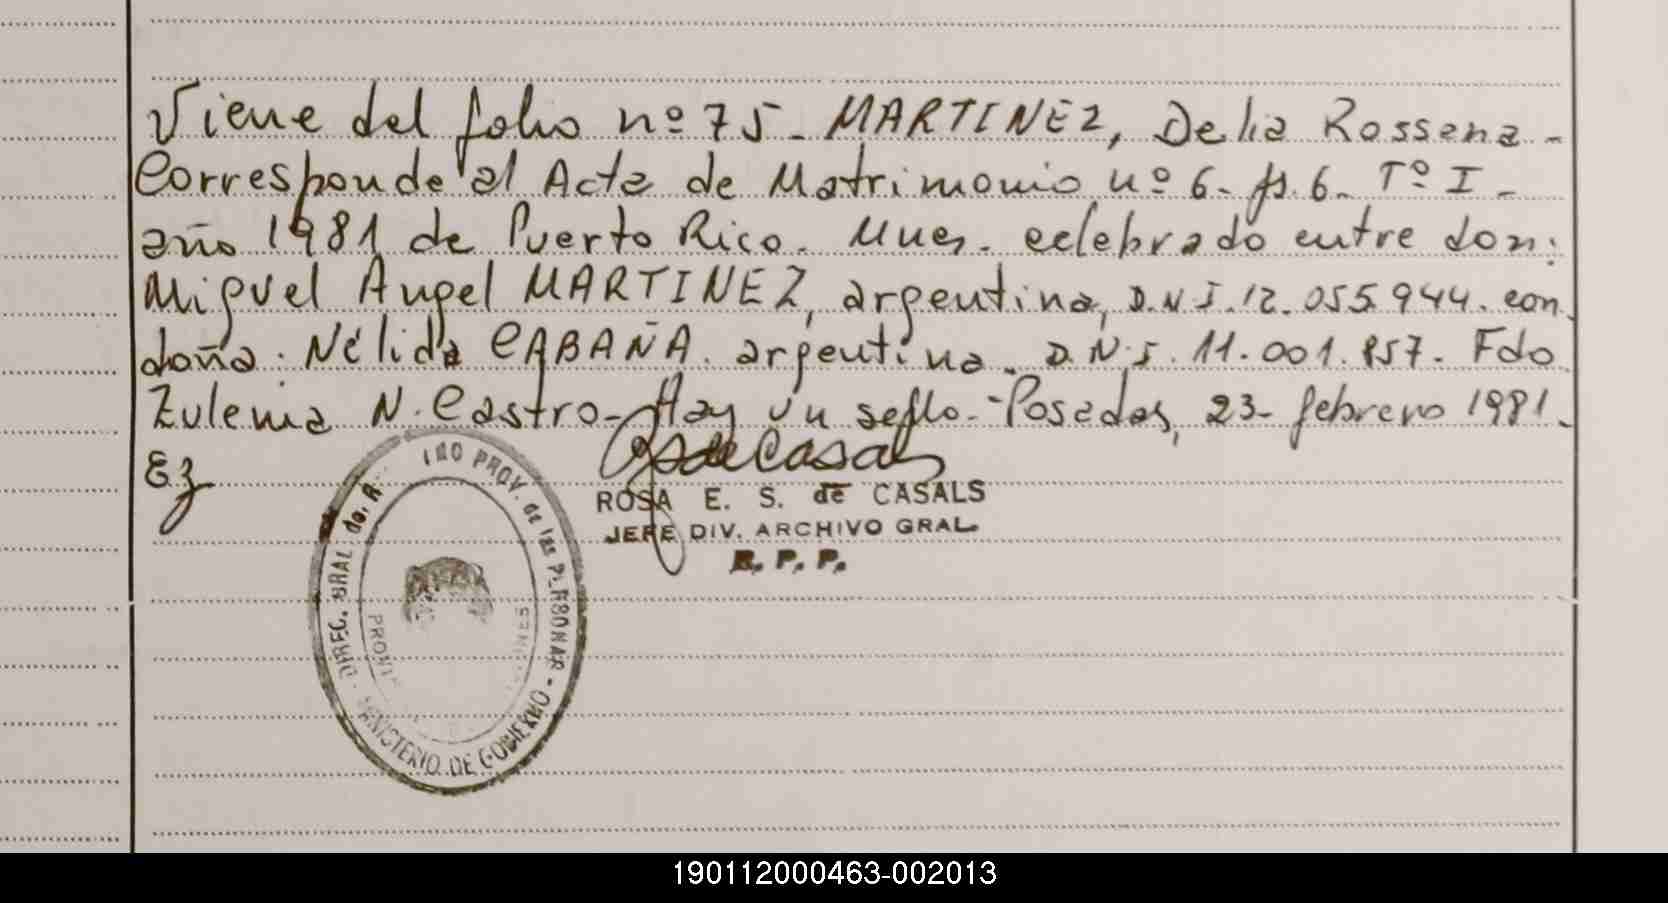 Viene del folio nº 75 - MARTINEZ, Delia Rossana -
Corresponde al Acta de Matrimonio nº 6 - fs. 6 - Tº I -
año 1981 de Puerto Rico - Mnes. celebrado entre don:
Miguel Angel MARTINEZ, argentino, D.N.I. 12.055.944. con
doña: Nélida CABAÑA. argentina. D.N.I. 11.001.857. Fdo
Zulema N. Castro - Hay un sello - Posadas, 23 - febrero 1981.
Ez
ROSA E. S. de CASALS
JEFE DIV. ARCHIVO GRAL.
R. P. P.
DIREC. GRAL de. R PROV. de las PERSONAS - MINISTERIO DE GOBIERNO -
190112000463-002013